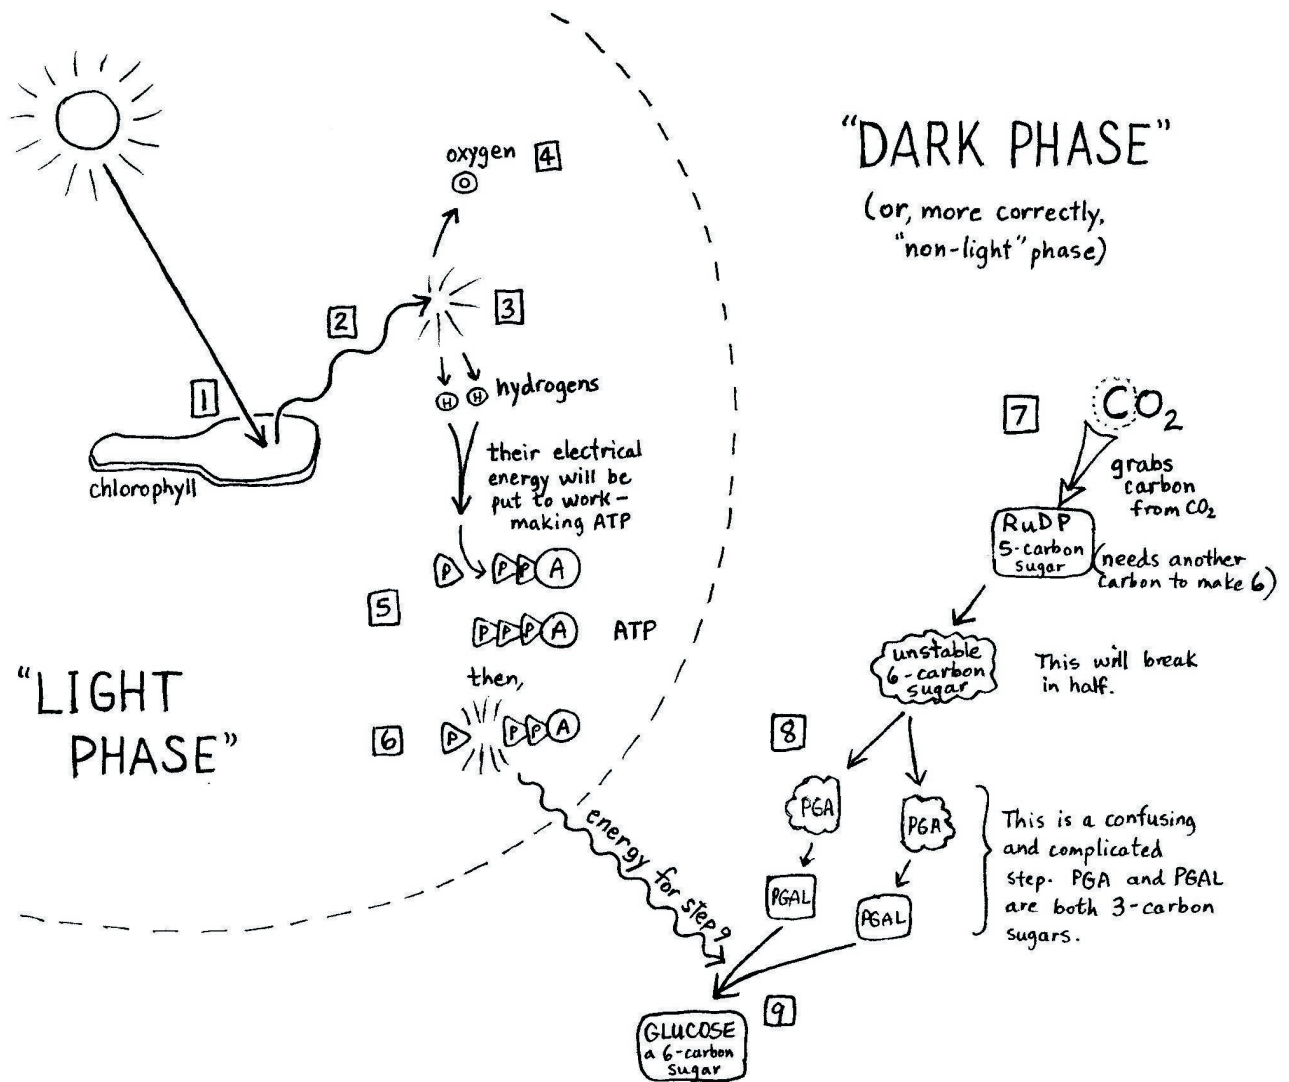 "DARK PHASE"
(or, more correctly,
"non-light" phase)
oxygen 4
O
3
2
1
H H hydrogens
chlorophyll
their electrical
energy will be
put to work–
making ATP
P P P A
5
P P P A ATP
then,
6
P P P A
"LIGHT
PHASE"
energy for step 9
7
CO₂
grabs
carbon
from CO₂
RuDP
5-carbon
sugar
(needs another
carbon to make 6)
unstable
6-carbon
sugar
This will break
in half.
8
PGA
PGA
PGAL
PGAL
This is a confusing
and complicated
step. PGA and PGAL
are both 3-carbon
sugars.
9
GLUCOSE
a 6-carbon
sugar